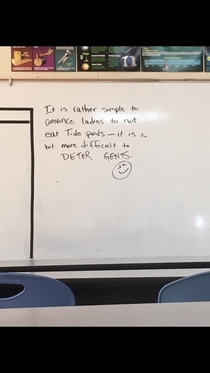 It is rather simple to
convince ladies to not
eat Tide pods — it is a
bit more difficult to
DETER GENTS.